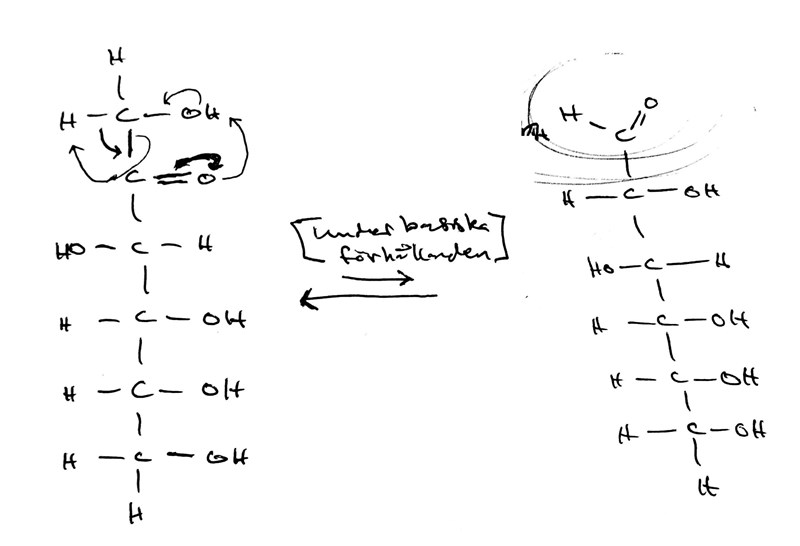 H
H – C – OH
C = O
HO – C – H
H – C – OH
H – C – OH
H – C – OH
H
[under basiska
förhållanden]
H – C = O
H – C – OH
HO – C – H
H – C – OH
H – C – OH
H – C – OH
H